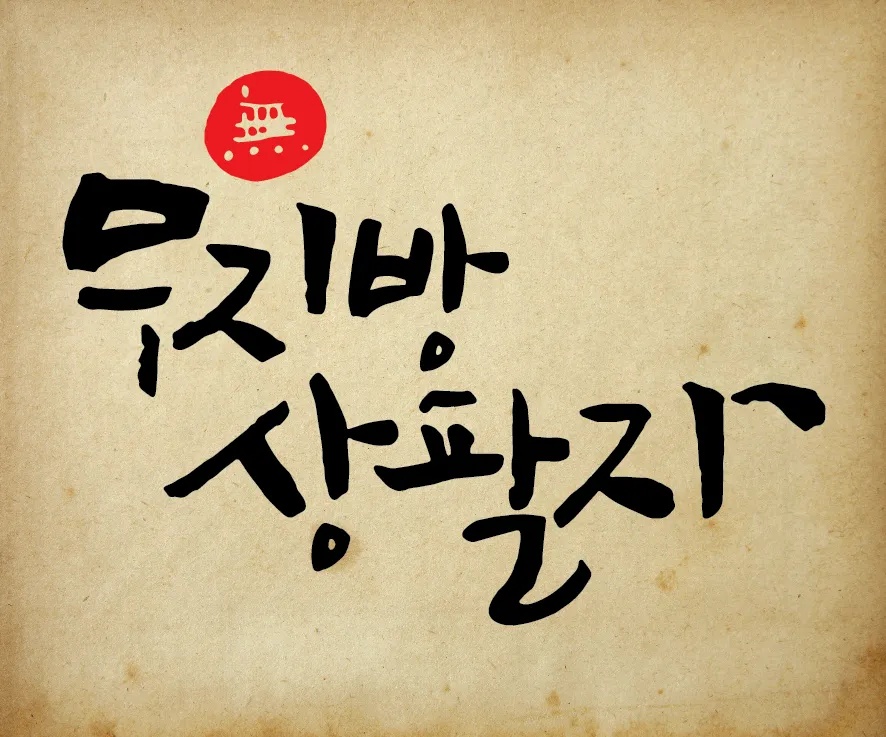 無
무지방
상팔자